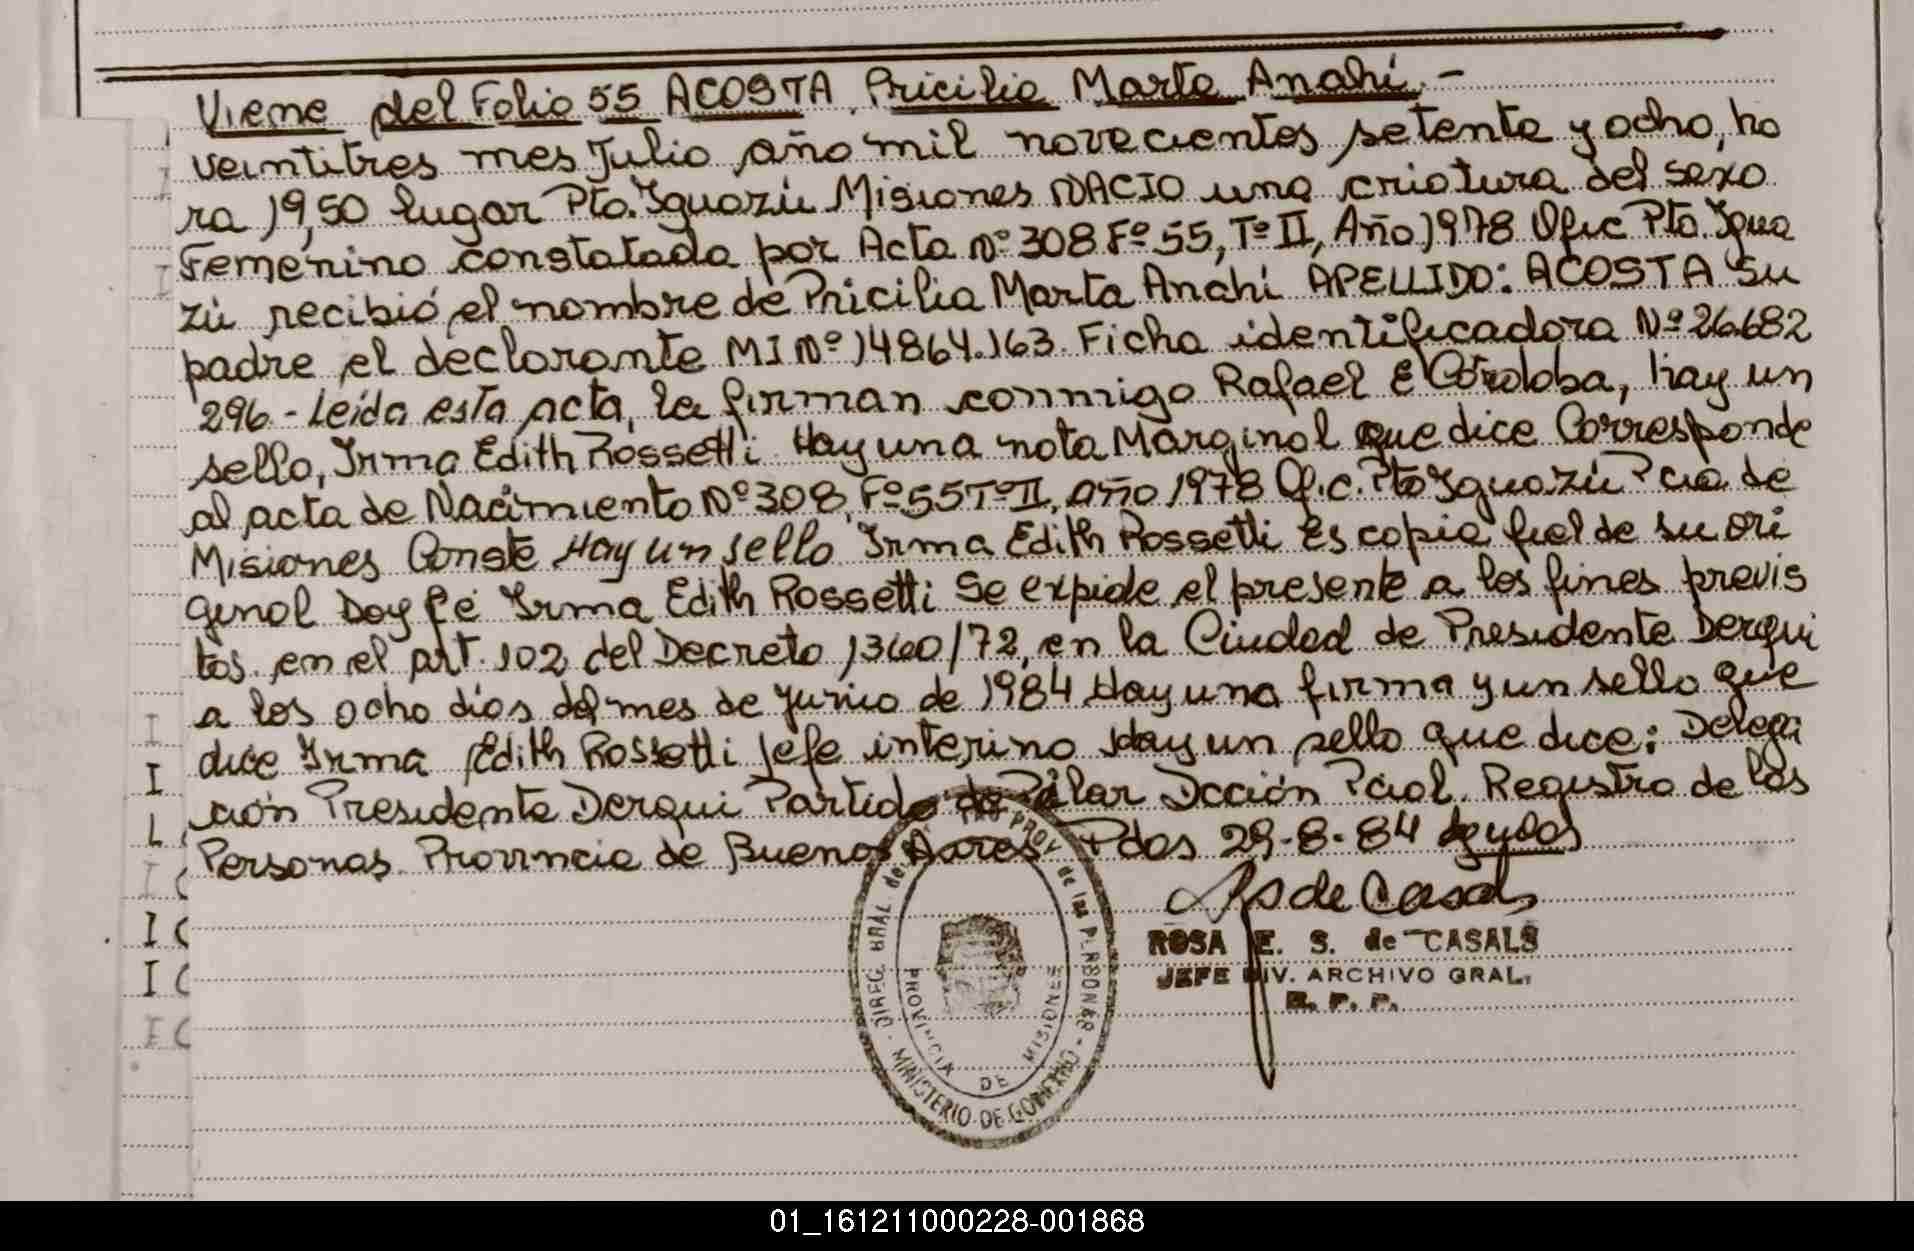 Viene del Folio 55 ACOSTA Pricilia Marta Anahí.-
veintitres mes Julio año mil novecientos setenta y ocho, ho
ra 19,50 lugar Pto. Iguazú Misiones NACIO una criatura del sexo
Femenino constatada por Acta Nº 308 Fº 55, Tº II, Año 1978 Ofic Pto. Igua
zú recibió el nombre de Pricilia Marta Anahí APELLIDO: ACOSTA Su
padre el declarante MI Nº 14864.163. Ficha identificadora Nº 26.682
296.- Leída esta acta, la firman conmigo Rafael E Córdoba, hay un
sello, Irma Edith Rossetti. Hay una nota Marginal que dice Corresponde
al acta de Nacimiento Nº 308, Fº 55 Tº II, año 1978 Ofic. Pto Iguazú Pcia de
Misiones Conste Hay un sello Irma Edith Rossetti Es copia fiel de su ori
ginal Doy fé Irma Edith Rossetti Se expide el presente a los fines previs
tos en el art. 102 del Decreto 1360/72, en la Ciudad de Presidente Derqui
a los ocho días del mes de Junio de 1984 Hay una firma y un sello que
dice Irma Edith Rossetti Jefe interino Hay un sello que dice: Delega
ción Presidente Derqui Partido de Pilar Dcción Pcial. Registro de las
Personas. Provincia de Buenos Aires Pdas 29-8-84
de Casals
ROSA E. S. de CASALS
JEFE DIV. ARCHIVO GRAL.
R. P. P.
DIREC. GRAL. del REG PROV. de las PERSONAS - MINISTERIO DE GOBIERNO -
PROVINCIA DE MISIONES
01_161211000228-001868